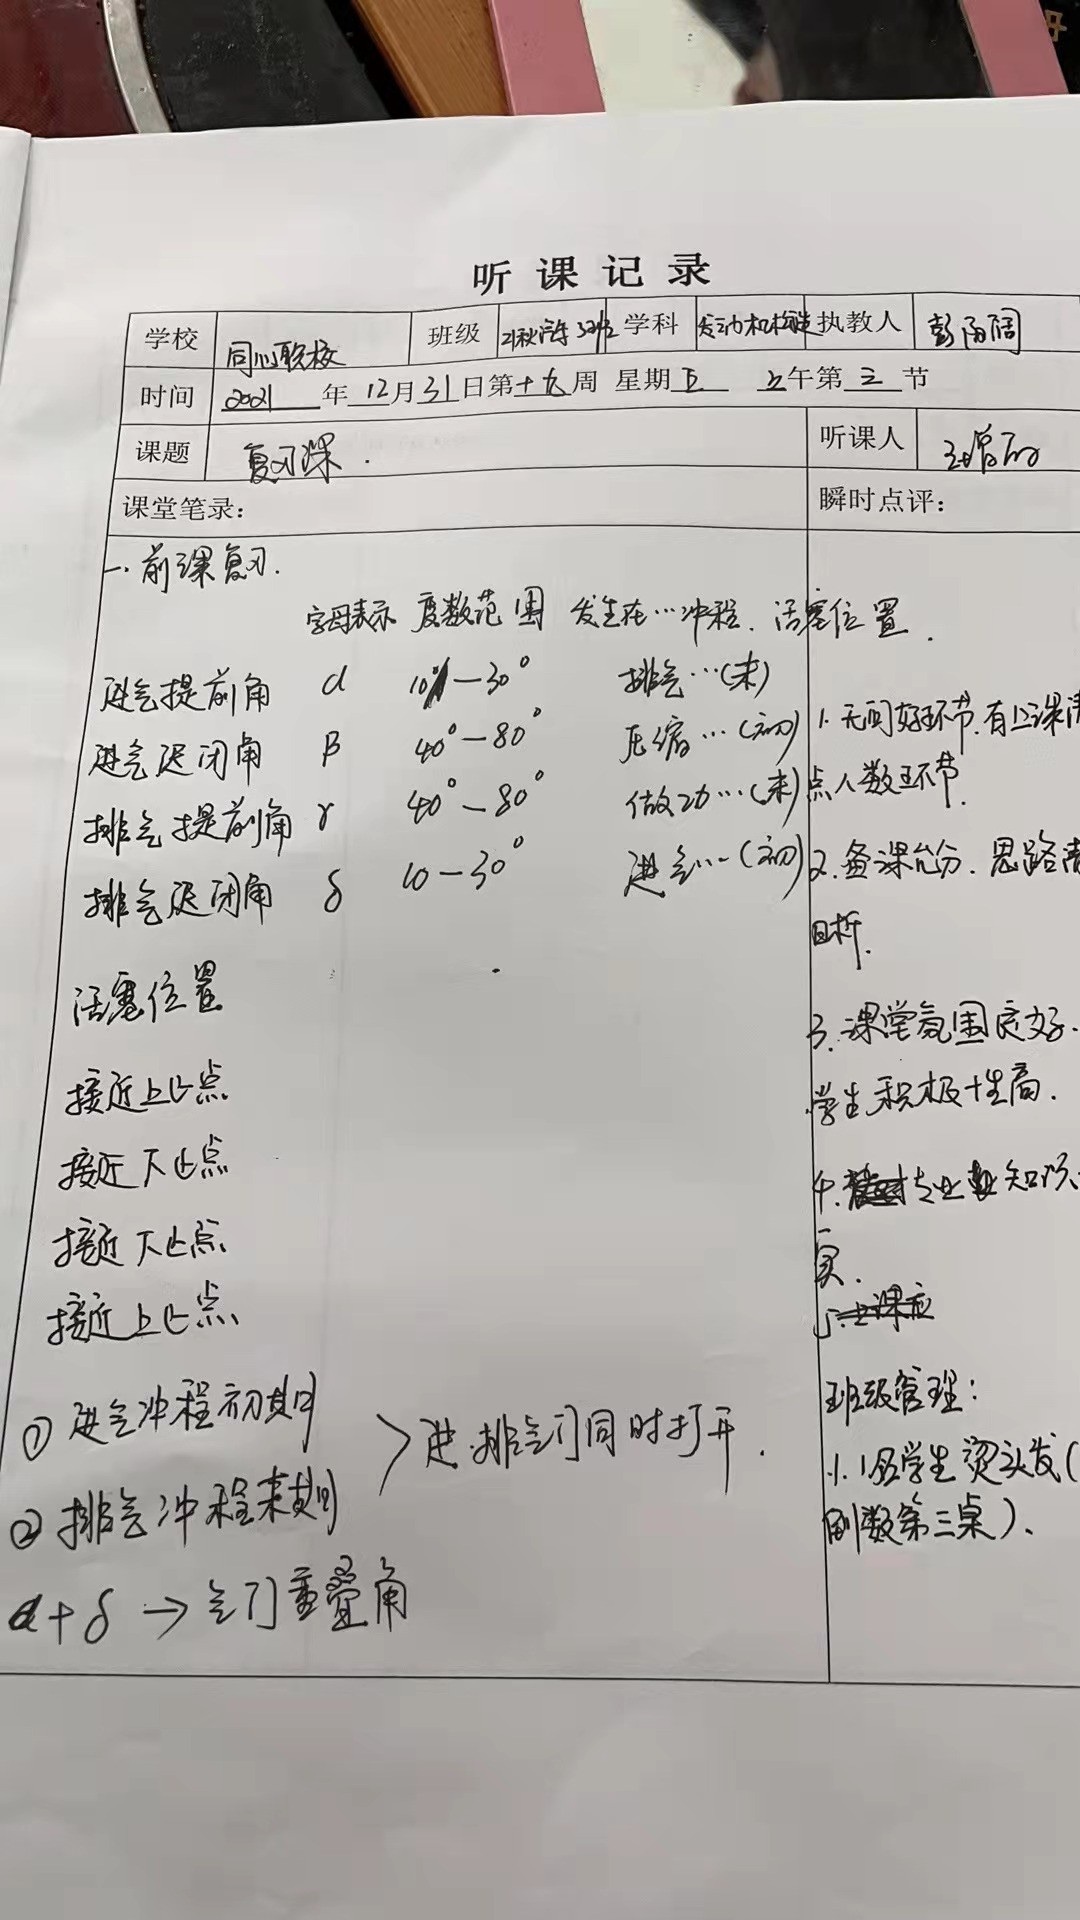 听课记录
学校 同心职校 班级 21秋汽车3班 学科 发动机构造 执教人 彭雨阔
时间 2021年12月31日第十九周 星期五 上午第三节
课题 复习课. 听课人
课堂笔录: 瞬时点评:
一.前课复习.
字母表示 度数范围 发生在…冲程. 活塞位置.
进气提前角 α 10°—30° 排气…(末)
进气迟闭角 β 40°—80° 压缩…(初)
排气提前角 γ 40°—80° 做功…(末)
排气迟闭角 δ 10—30° 进气…(初)
活塞位置
接近上止点
接近下止点
接近下止点.
接近上止点.
①进气冲程初期
②排气冲程末期
>进.排气门同时打开.
α+δ→气门重叠角
1.无问好环节.有上课清
点人数环节.
2.备课充分.思路清
目标.
3.课堂氛围良好.
学生积极性高.
4.专业知识
实.
班级管理:
1.1名学生烫头发(
倒数第三桌).